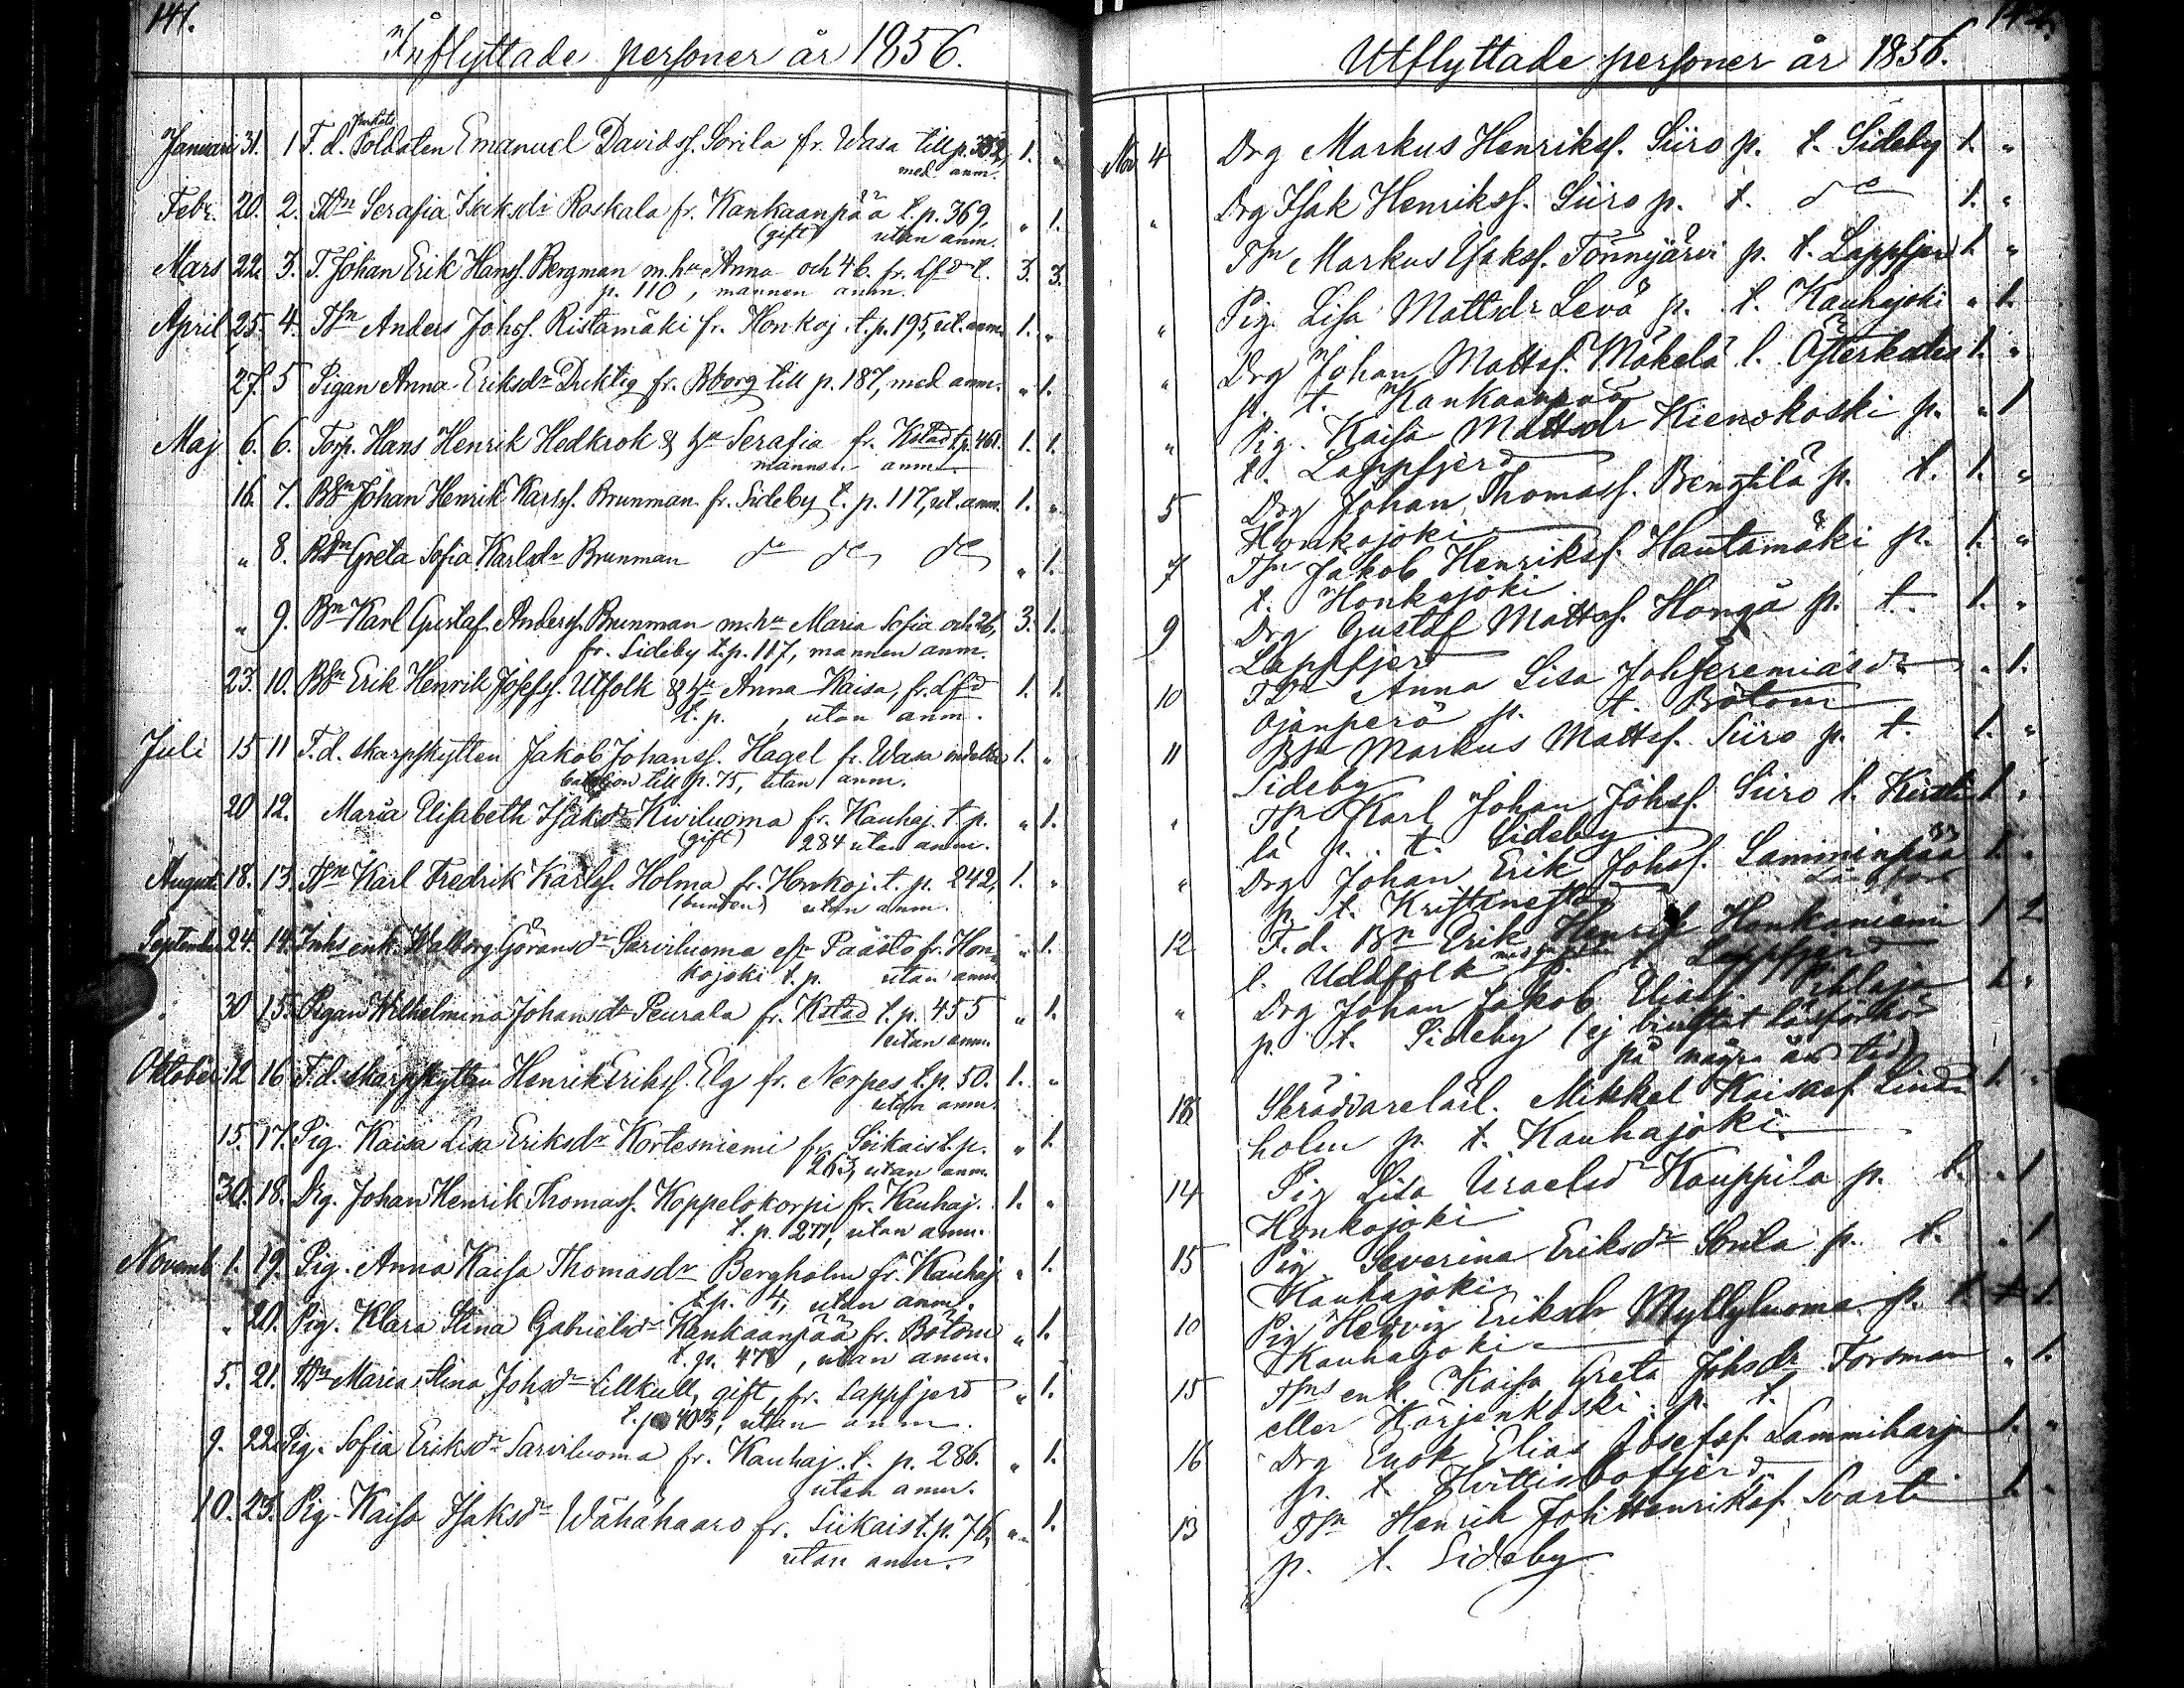 141.
Inflyttade personer år 1856.
Januari 31. 1 F. d. Soldaten Emanuel Davidss. Sorila fr. Wasa till p. 332, 1. "
med anm.
Febr. 20. 2. Tdn Serafia Isaksdr Raskala fr. Kankaanpää t. p. 369, " 1.
(gift) utan anm.
Mars 22. 3. T. Johan Erik Hanss. Bergman m. hu Anna och 4 b. fr. Lfd t. 3. 3.
p. 110, mannen anm.
April 25. 4. Tsn Anders Johss. Ristamäki fr. Honkoj. t. p. 195, ut. anm. 1. "
27. 5 Pigan Anna Eriksdr Duktig fr. Bborg till p. 187, med anm. " 1.
Maj 6. 6. Torp. Hans Henrik Hedkrok & hu Serafia fr. Kstad t. p. 461. 1. 1.
mannen anm.
16. 7. Bsn Johan Henrik Karlss. Brunman fr. Sideby t. p. 117, ut. anm. 1. "
" 8. Bdn Greta Sofia Karlsdr Brunman do do do " 1.
" 9. Bn Karl Gustaf Anderss. Brunman m. hu Maria Sofia och 2 b, 3. 1.
fr. Sideby t. p. 117, mannen anm.
23. 10. Bsn Erik Henrik Josefss. Utfolk & hu Anna Kaisa, fr. Lfd 1. 1.
t. p. , utan anm.
Juli 15 11 F. d. skarpskytten Jakob Johanss. Hagel fr. Wasa indelta 1. "
bataljon till p. 75, utan anm.
20 12. Maria Elisabeth Isaksdr Kiviluoma fr. Kauhaj. t. p. " 1.
(gift) 284 utan anm.
August 18. 13. Tsn Karl Fredrik Karlss. Holma fr. Honkoj. t. p. 242, 1. "
(bunden) utan anm.
September 24. 14. Inhs enk. Walborg Göransdr Sarviluoma elr Paasto fr. Hon- " 1.
kojoki t. p. utan anm.
30 15. Pigan Wilhelmina Johansdr Peurala fr. Kstad t. p. 455 " 1.
utan anm.
Oktober 12 16. F. d. skarpskytten Henrik Erikss. Elg fr. Nerpes t. p. 50. 1. "
utan anm.
15. 17. Pig. Kaisa Lisa Eriksdr Kortesniemi fr. Siikais t. p. " 1.
263, utan anm.
30. 18. Drg. Johan Henrik Thomass. Koppelokorpi fr. Kauhaj. 1. "
t. p. 277, utan anm.
Novemb 1. 19. Pig. Anna Kaisa Thomasdr Bergholm fr. Kauhaj. " 1.
t. p. 4, utan anm.
" 20. Pig. Klara Stina Gabrielsdr Kankaanpää fr. Bötom " 1.
t. p. 478, utan anm.
5. 21. Tdn Maria Stina Johsdr Lillkull, gift, fr. Lappfjerd " 1.
t. p. 403, utan anm.
9. 22. Pig. Sofia Eriksdr Sarviluoma fr. Kauhaj. t. p. 286. " 1.
utan anm.
10. 23. Pig. Kaisa Isaksdr Wähähaaro fr. Siikais t. p. 76, " 1.
utan anm.
142.
Utflyttade personer år 1856.
Nov 4 Drg Markus Henrikss. Siiro p. t. Sideby 1. "
" Drg Isak Henrikss. Siiro p. t. do 1. "
Tsn Markus Isakss. Tönnyjärvi p. t. Lappfjerd 1. "
" Pig. Lisa Mattsdr Levä p. t. Kauhajoki " 1.
" Drg Johan Mattss. Mäkelä l. Österkatis 1. "
p. t. Kankaanpää
" Pig. Kaisa Mattsdr Kienokoski p. " 1
t. Lappfjerd
5 Drg Johan Thomass. Bengtilä p. t. 1. "
Honkajoki
7 Tsn Jakob Henrikss. Hautamäki p. 1. "
t. Honkajoki
9 Drg Gustaf Mattss. Hongä p. t. 1. "
Lappfjerd
10 Tdn Anna Lisa Joh Jeremiasdr " 1.
Ojanperä p. t. Bötom
11 Bsn Markus Mattss. Siiro p. t. 1. "
Sideby
" Tsn Karl Johan Johss. Siiro l. 1. "
lä p. t. Sideby
" Drg Johan Erik Johss. Lamminpää 1. "
p. t. Kristinestad
12 F. d. Bn Erik Henrik Honkaniemi 1 2
l. Uddfolk t. Lappfjerd
" Drg Johan Jakob Eliass. Pihlaja 1. "
p. t. Sideby (ej bivistat läsförhör
på några års tid)
18 Skräddarelärl. Mikkel Kaisass. Lind- 1. "
holm p. t. Kauhajoki
14 Pig Lisa Israelsdr Kauppila p. t. " 1
Honkajoki
15 Pig Severina Eriksdr Sorila p. t. " 1
Kauhajoki
10 Pig Hedvig Eriksdr Myllyluoma p. t. 1.
Kauhajoki
15 Tsns enk Kaisa Greta Johsdr Forsman " 1.
eller Härjenkoski p. t.
16 Drg Enok Elias Josefss. Lammiharju 1. "
p. t. Hvittisbofjerd
13 Tsn Henrik Joh Henrikss. Svarti 1. "
p. t. Sideby